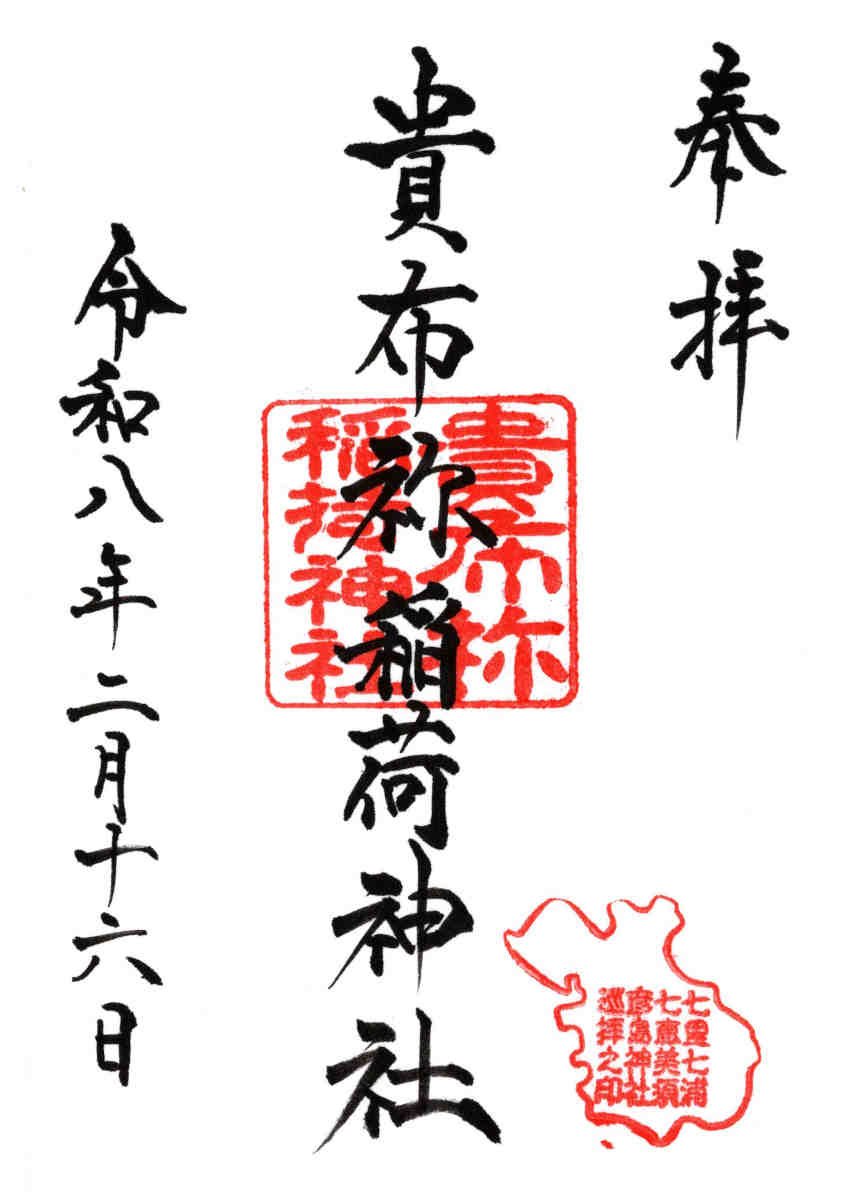 奉拝
貴布祢稲荷神社
令和八年二月十六日
貴布祢
稲荷神社
七里七浦
七恵美須
彦島神社
巡拝之印